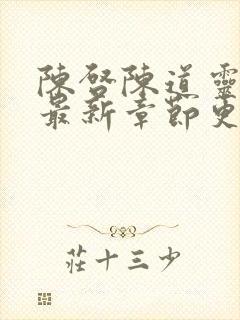 陳啓陳道靈
最新章節更
莊十三少